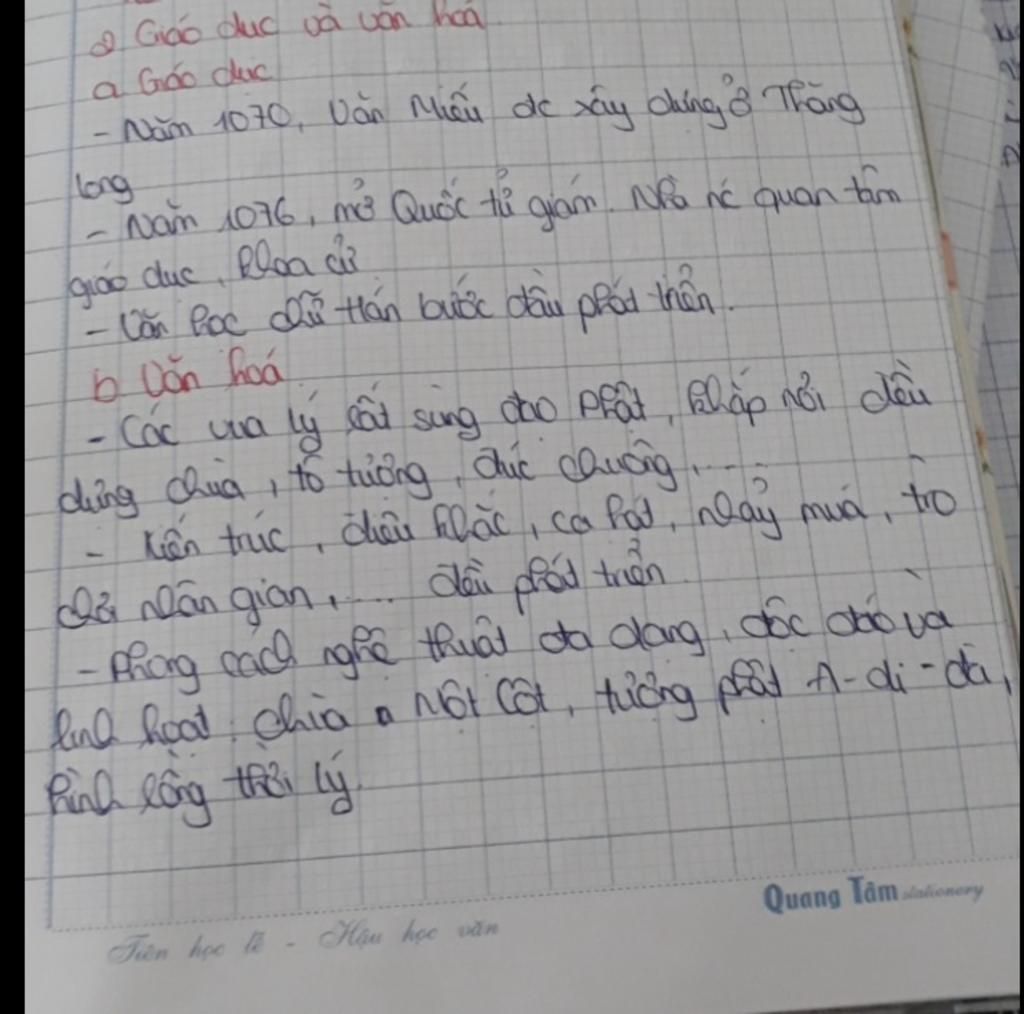 2 Giáo dục và văn hoá
a Giáo dục
- Năm 1070, Văn Miếu đc xây dựng ở Thăng
long
- Năm 1076, mở Quốc tử giám. Nhà nc quan tâm
giáo dục, khoa cử
- Văn học chữ Hán bước đầu phát triển.
b Văn hoá
- Các vua lý rất sùng đạo Phật, khắp nơi đều
dựng chùa, tô tượng, đúc chuông....
- Kiến trúc, điêu khắc, ca hát, nhảy múa, trò
chơi dân gian,.... đều phát triển
- Phong cách nghệ thuật đa dạng, độc đáo và
linh hoạt: chùa Một Cột, tượng phật A-di-đà,
hình rồng thời lý.
Quang Tâm stationery
Tiên học lễ - Hậu học văn